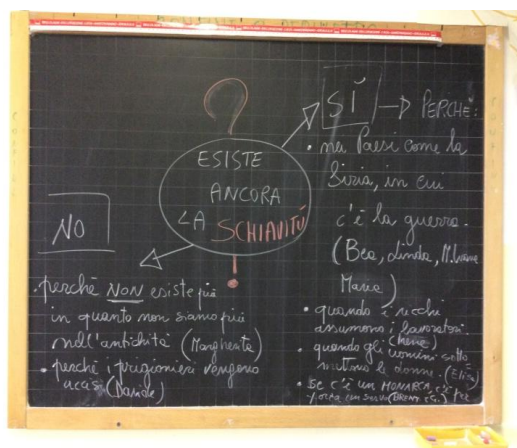 ?
ESISTE
ANCORA
LA SCHIAVITÙ
NO
. perché NON esiste più
in quanto non siamo più
nell'antichità (Margherita)
• perché i prigionieri vengono
uccisi (Davide)
SÌ → PERCHÉ:
• nei Paesi come la
Siria, in cui
c'è la guerra.
(Bea, Linda, M.
Maria)
• quando i ricchi
assumono i lavoratori.
• quando gli uomini sotto
mettono le donne. (Elisa)
• SE C'È UN MONARCA, c'è